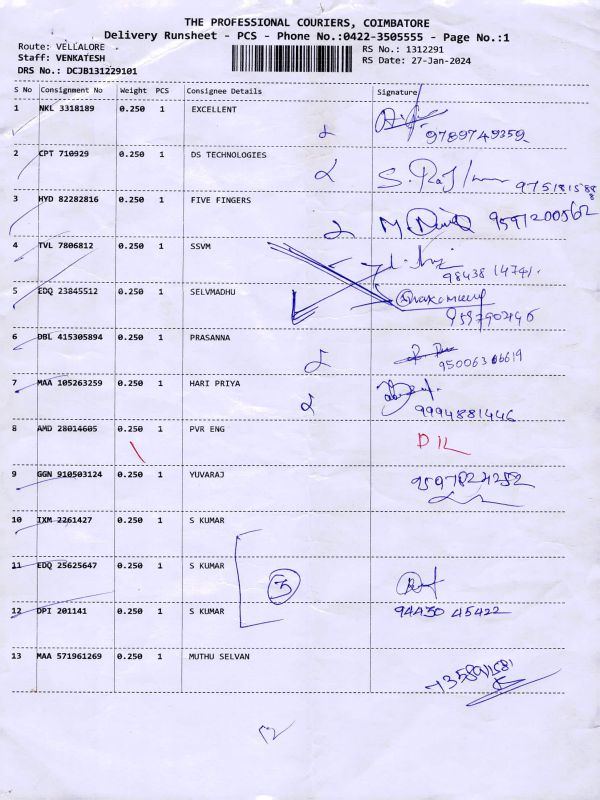 THE PROFESSIONAL COURIERS, COIMBATORE
Delivery Runsheet - PCS - Phone No.:0422-3505555 - Page No.:1
Route: VELLALORE
Staff: VENKATESH
DRS No.: DCJB131229101
RS No.: 1312291
RS Date: 27-Jan-2024
S No Consignment No Weight PCS Consignee Details Signature
1 NKL 3318189 0.250 1 EXCELLENT
9789749359
2 CPT 710929 0.250 1 DS TECHNOLOGIES
3 HYD 82282816 0.250 1 FIVE FINGERS
9591200562
4 TVL 7806812 0.250 1 SSVM
5 EDQ 23845512 0.250 1 SELVMADHU
6 DBL 415305894 0.250 1 PRASANNA
7 MAA 105263259 0.250 1 HARI PRIYA
9994881446
8 AMD 28014605 0.250 1 PVR ENG
9 GGN 910503124 0.250 1 YUVARAJ
9597824252
10 IXM 2261427 0.250 1 S KUMAR
11 EDQ 25625647 0.250 1 S KUMAR
3
12 DPI 201141 0.250 1 S KUMAR
94430 45422
13 MAA 571961269 0.250 1 MUTHU SELVAN